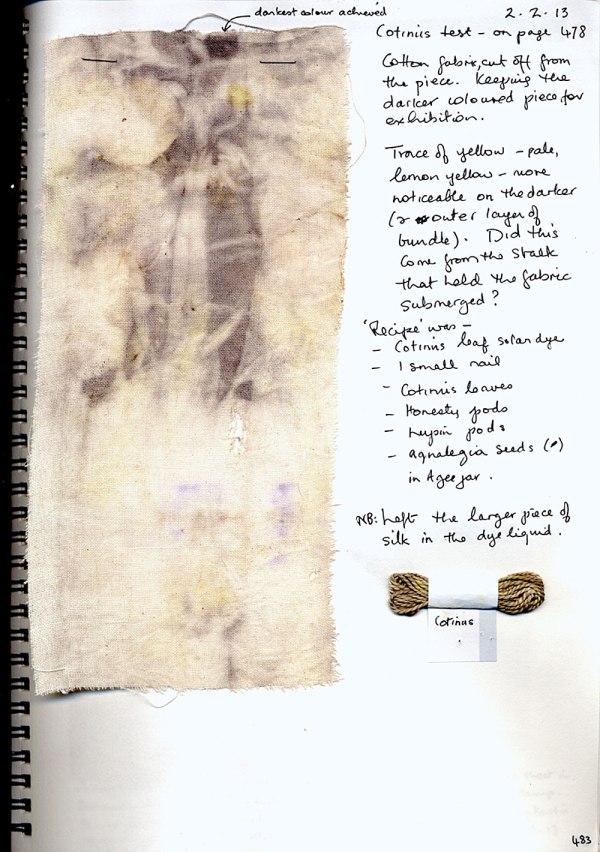 darkest colour achieved
2.2.13
Cotinus test - on page 478
Cotton fabric, cut off from
the piece. Keeping the
darker coloured piece for
exhibition.
Trace of yellow - pale,
lemon yellow - more
noticeable on the darker
(& outer layer of
bundle). Did this
come from the stalk
that held the fabric
submerged?
'Recipe' was -
- Cotinus leaf solar dye
- 1 small nail
- Cotinus leaves
- Honesty pods
- Lupin pods
- Aqualegia seeds ( )
in Agee jar.
NB: Left the larger piece of
silk in the dye liquid.
Cotinus
483